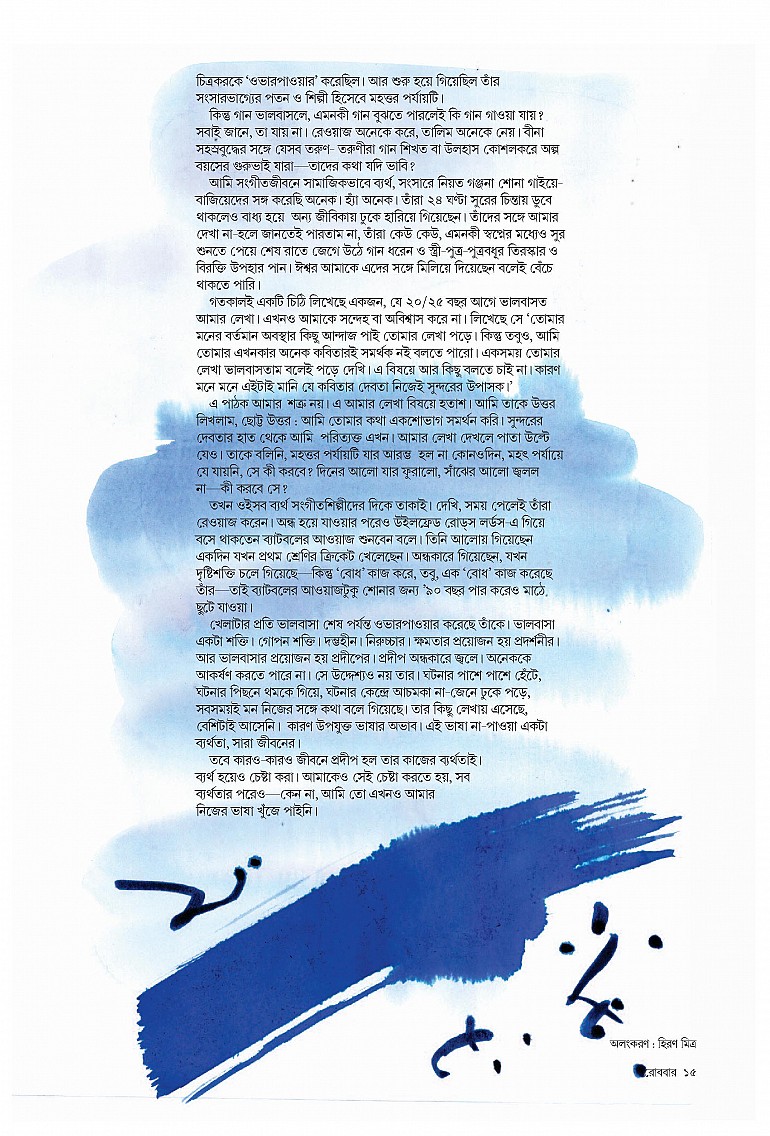 চিত্রকরকে ‘ওভারপাওয়ার’ করেছিল। আর শুরু হয়ে গিয়েছিল তাঁর
সংসারভাগ্যের পতন ও শিল্পী হিসেবে মহত্তর পর্যায়টি।
কিন্তু গান ভালবাসলে, এমনকী গান বুঝতে পারলেই কি গান গাওয়া যায়?
সবাই জানে, তা যায় না। রেওয়াজ অনেকে করে, তালিম অনেকে নেয়। বীনা
সহস্রবুদ্ধের সঙ্গে যেসব তরুণ- তরুণীরা গান শিখত বা উলহাস কোশলকরে অল্প
বয়সের গুরুভাই যারা—তাদের কথা যদি ভাবি?
আমি সংগীতজীবনে সামাজিকভাবে ব্যর্থ, সংসারে নিয়ত গঞ্জনা শোনা গাইয়ে-
বাজিয়েদের সঙ্গ করেছি অনেক। হ্যাঁ অনেক। তাঁরা ২৪ ঘণ্টা সুরের চিন্তায় ডুবে
থাকলেও বাধ্য হয়ে অন্য জীবিকায় ঢুকে হারিয়ে গিয়েছেন। তাঁদের সঙ্গে আমার
দেখা না-হলে জানতেই পারতাম না, তাঁরা কেউ কেউ, এমনকী স্বপ্নের মধ্যেও সুর
শুনতে পেয়ে শেষ রাতে জেগে উঠে গান ধরেন ও স্ত্রী-পুত্র-পুত্রবধূর তিরস্কার ও
বিরক্তি উপহার পান। ঈশ্বর আমাকে এদের সঙ্গে মিলিয়ে দিয়েছেন বলেই বেঁচে
থাকতে পারি।
গতকালই একটি চিঠি লিখেছে একজন, যে ২০/২৫ বছর আগে ভালবাসত
আমার লেখা। এখনও আমাকে সন্দেহ বা অবিশ্বাস করে না। লিখেছে সে ‘তোমার
মনের বর্তমান অবস্থার কিছু আন্দাজ পাই তোমার লেখা পড়ে। কিন্তু তবুও, আমি
তোমার এখনকার অনেক কবিতারই সমর্থক নই বলতে পারো। একসময় তোমার
লেখা ভালবাসতাম বলেই পড়ে দেখি। এ বিষয়ে আর কিছু বলতে চাই না। কারণ
মনে মনে এইটাই মানি যে কবিতার দেবতা নিজেই সুন্দরের উপাসক।’
এ পাঠক আমার শত্রু নয়। এ আমার লেখা বিষয়ে হতাশ। আমি তাকে উত্তর
লিখলাম, ছোট্ট উত্তর : আমি তোমার কথা একশোভাগ সমর্থন করি। সুন্দরের
দেবতার হাত থেকে আমি পরিত্যক্ত এখন। আমার লেখা দেখলে পাতা উল্টে
যেও। তাকে বলিনি, মহত্তর পর্যায়টি যার আরম্ভ হল না কোনওদিন, মহৎ পর্যায়ে
যে যায়নি, সে কী করবে? দিনের আলো যার ফুরালো, সাঁঝের আলো জ্বলল
না—কী করবে সে?
তখন ওইসব ব্যর্থ সংগীতশিল্পীদের দিকে তাকাই। দেখি, সময় পেলেই তাঁরা
রেওয়াজ করেন। অন্ধ হয়ে যাওয়ার পরেও উইলফ্রেড রোড্‌স লর্ডস-এ গিয়ে
বসে থাকতেন ব্যাটবলের আওয়াজ শুনবেন বলে। তিনি আলোয় গিয়েছেন
একদিন যখন প্রথম শ্রেণির ক্রিকেট খেলেছেন। অন্ধকারে গিয়েছেন, যখন
দৃষ্টিশক্তি চলে গিয়েছে—কিন্তু ‘বোধ’ কাজ করে, তবু, এক ‘বোধ’ কাজ করেছে
তাঁর—তাই ব্যাটবলের আওয়াজটুকু শোনার জন্য ’৯০ বছর পার করেও মাঠে
ছুটে যাওয়া।
খেলাটার প্রতি ভালবাসা শেষ পর্যন্ত ওভারপাওয়ার করেছে তাঁকে। ভালবাসা
একটা শক্তি। গোপন শক্তি। দম্ভহীন। নিরুচ্চার। ক্ষমতার প্রয়োজন হয় প্রদর্শনীর।
আর ভালবাসার প্রয়োজন হয় প্রদীপের। প্রদীপ অন্ধকারে জ্বলে। অনেককে
আকর্ষণ করতে পারে না। সে উদ্দেশ্যও নয় তার। ঘটনার পাশে পাশে হেঁটে,
ঘটনার পিছনে থমকে গিয়ে, ঘটনার কেন্দ্রে আচমকা না-জেনে ঢুকে পড়ে,
সবসময়ই মন নিজের সঙ্গে কথা বলে গিয়েছে। তার কিছু লেখায় এসেছে,
বেশিটাই আসেনি। কারণ উপযুক্ত ভাষার অভাব। এই ভাষা না-পাওয়া একটা
ব্যর্থতা, সারা জীবনের।
তবে কারও-কারও জীবনে প্রদীপ হল তার কাজের ব্যর্থতাই।
ব্যর্থ হয়েও চেষ্টা করা। আমাকেও সেই চেষ্টা করতে হয়, সব
ব্যর্থতার পরেও—কেন না, আমি তো এখনও আমার
নিজের ভাষা খুঁজে পাইনি।
অলংকরণ : হিরণ মিত্র
রোববার ১৫